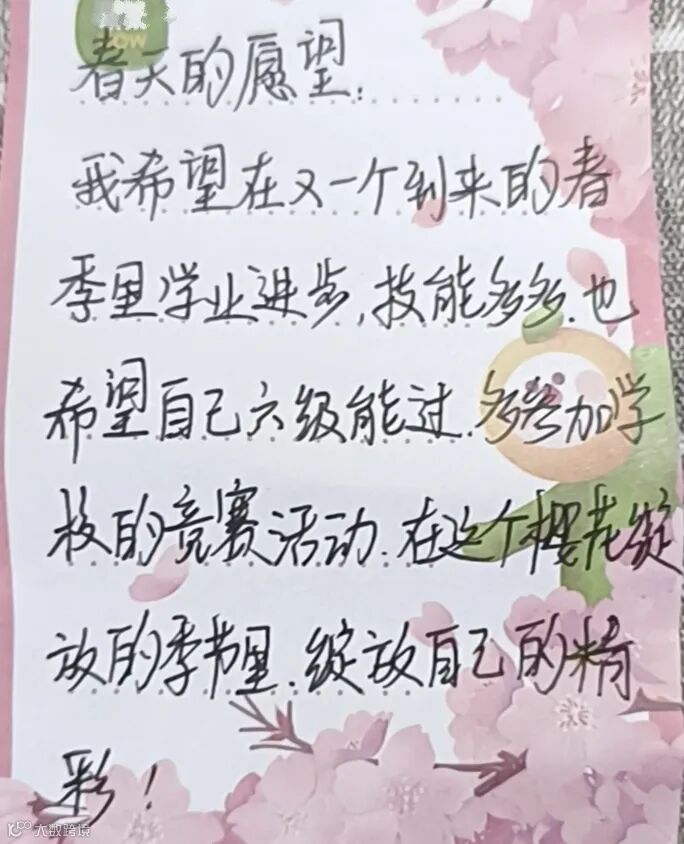 春天的愿望:
我希望在又一个到来的春
季里学业进步,技能多多.也
希望自己六级能过.多参加学
校的竞赛活动.在这个樱花绽
放的季节里.绽放自己的精
彩!
大数跨境